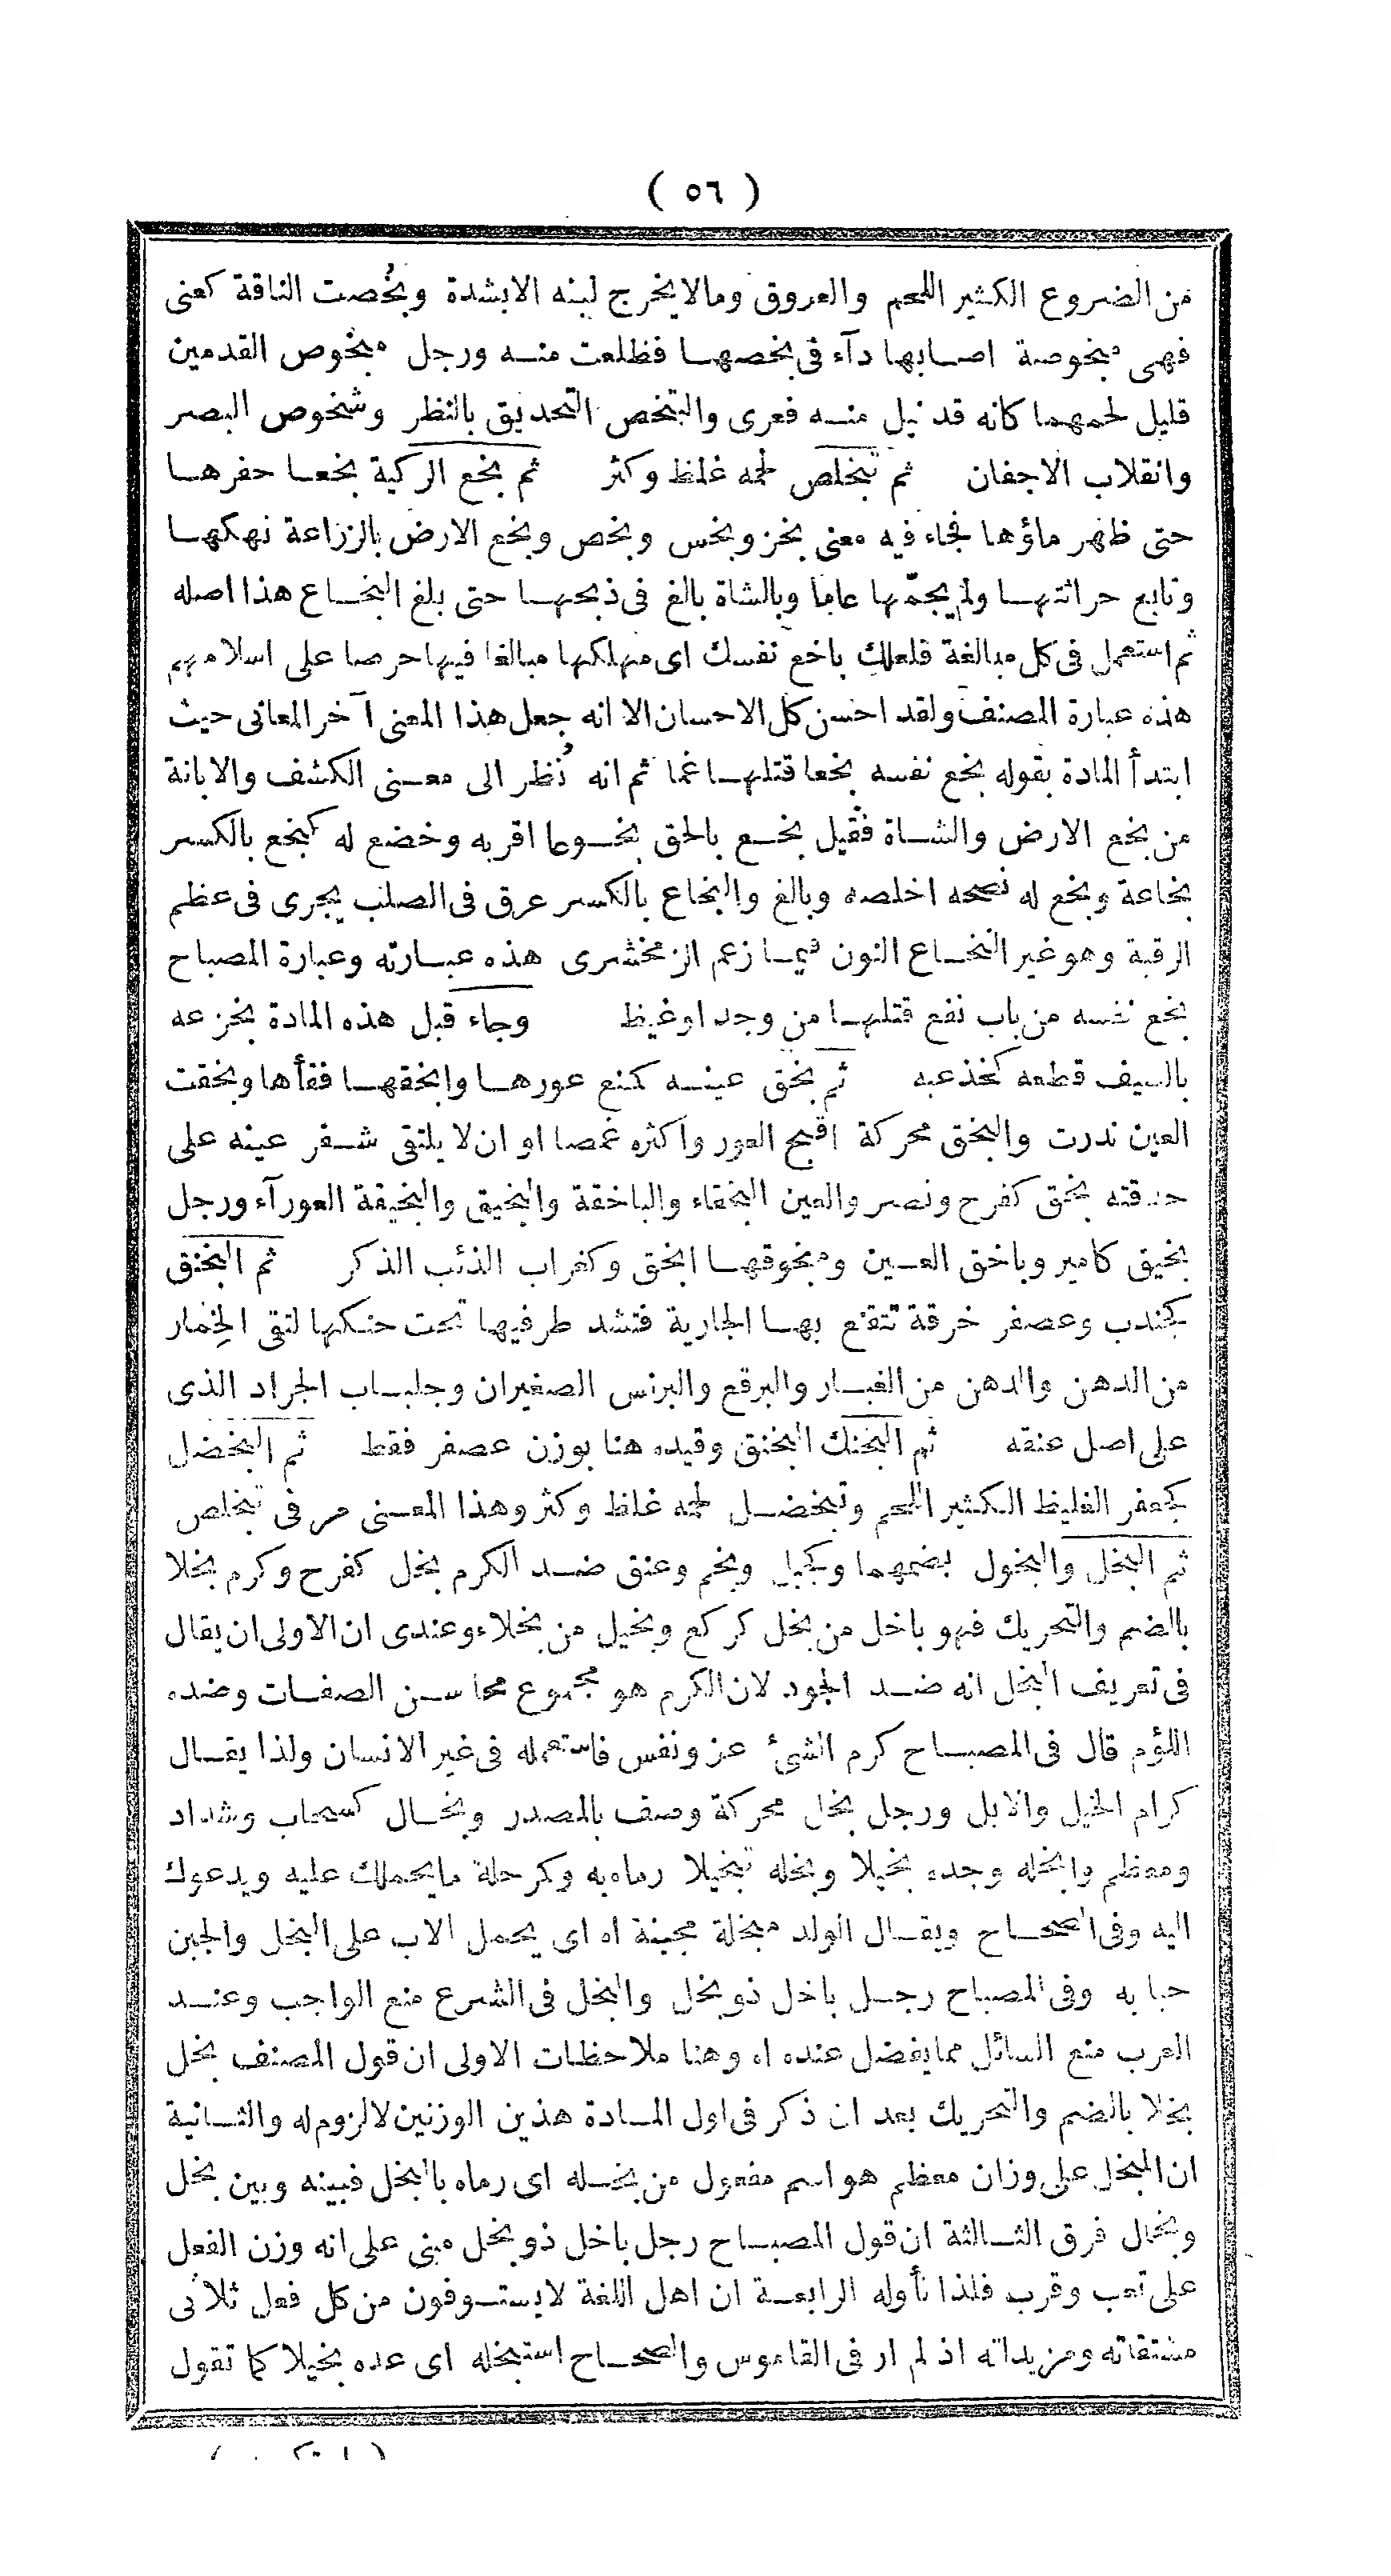 ( ٥٦ )
من الضروع الكثير اللحم والعروق ومالايخرج لبنه الابشدة وبُخصت الناقة كعنى
فهى مبخوصة اصابها دآء فى بخصها فظلعت منه ورجل مبخوص القدمين
قليل لحمهما كانه قد نيل منه فعرى والتبخص التحديق بالنظر وشخوص البصر
وانقلاب الاجفان ثم تبخلص لحمه غلظ وكثر ثم بخع الركية بخعا حفرها
حتى ظهر ماؤها فجاء فيه معنى بخز وبخس وبخص وبخع الارض بالزراعة نهكها
وتابع حراثتها ولم يجمّها عاما وبالشاة بالغ فى ذبحها حتى بلغ البخاع هذا اصله
ثم استعمل فى كل مبالغة فلعلك باخع نفسك اى مهلكها مبالغا فيها حرصا على اسلامهم
هذه عبارة المصنف ولقد احسن كل الاحسان الا انه جعل هذا المعنى آخر المعانى حيث
ابتدأ المادة بقوله بخع نفسه بخعا قتلها غما ثم انه نُظر الى معنى الكشف والابانة
من بخع الارض والشاة فقيل بخع بالحق بخوعا اقر به وخضع له كبخع بالكسر
بخاعة وبخع له نصحه اخلصه وبالغ والبخاع بالكسر عرق فى الصلب يجرى فى عظم
الرقبة وهو غير النخاع النون فيما زعم الزمخشرى هذه عبارته وعبارة المصباح
بخع نفسه من باب نفع قتلها من وجد اوغيظ وجاء قبل هذه المادة بخزعه
بالسيف قطعه كخذعبه ثم بخق عينه كنع عورها وابخقها فقأها وبخقت
العين ندرت والبخق محركة اقبح العور واكثره غمصا او ان لا يلتقى شفر عينه على
حدقته بخق كفرح ونصر والعين البخقاء والباخقة والبخيق والبخيقة العورآء ورجل
بخيق كامير وباخق العين ومبخوقها ابخق وكغراب الذئب الذكر ثم البخنق
كجندب وعصفر خرقة تتقنع بها الجارية فتشد طرفيها تحت حنكها لتقى الخِمار
من الدهن والدهن من الغبار والبرقع والبرنس الصغيران وجلباب الجراد الذى
على اصل عنقه ثم البخنك البخنق وقيده هنا بوزن عصفر فقط ثم البخضل
كجعفر الغليظ الكثير اللحم وتبخضل لحمه غلظ وكثر وهذا المعنى مر فى تبخلص
ثم البخل والبخول بضمهما وكجبل ونجم وعنق ضد الكرم بخل كفرح وكرم بخلا
بالضم والتحريك فهو باخل من بخل كركع وبخيل من بخلاء وعندى ان الاولى ان يقال
فى تعريف البخل انه ضد الجود لان الكرم هو مجموع محاسن الصفات وضده
اللؤم قال فى المصباح كرم الشئ عز ونفس فاستعمله فى غير الانسان ولذا يقال
كرام الخيل والابل ورجل بخل محركة وصف بالمصدر وبخال كسحاب وشداد
ومعظم وابخله وجده بخيلا وبخله تبخيلا رماه به وكرحلة مايحملك عليه ويدعوك
اليه وفى الصحاح ويقال الولد مبخلة مجبنة اه اى يحمل الاب على البخل والجبن
حبا به وفى المصباح رجل باخل ذو بخل والبخل فى الشرع منع الواجب وعند
العرب منع السائل مما يفضل عنده اه وهنا ملاحظات الاولى ان قول المصنف بخل
بخلا بالضم والتحريك بعد ان ذكر فى اول المادة هذين الوزنين لا لزوم له والثانية
ان المبخل على وزان معظم هو اسم مفعول من بخله اى رماه بالبخل فبينه وبين بخل
وبخال فرق الثالثة ان قول المصباح رجل باخل ذو بخل مبنى على انه وزن الفعل
على تعب وقرب فلذا تأوله الرابعة ان اهل اللغة لايستوفون من كل فعل ثلاثى
مشتقاته ومزيداته اذ لم ار فى القاموس والصحاح استبخله اى عده بخيلا كما تقول